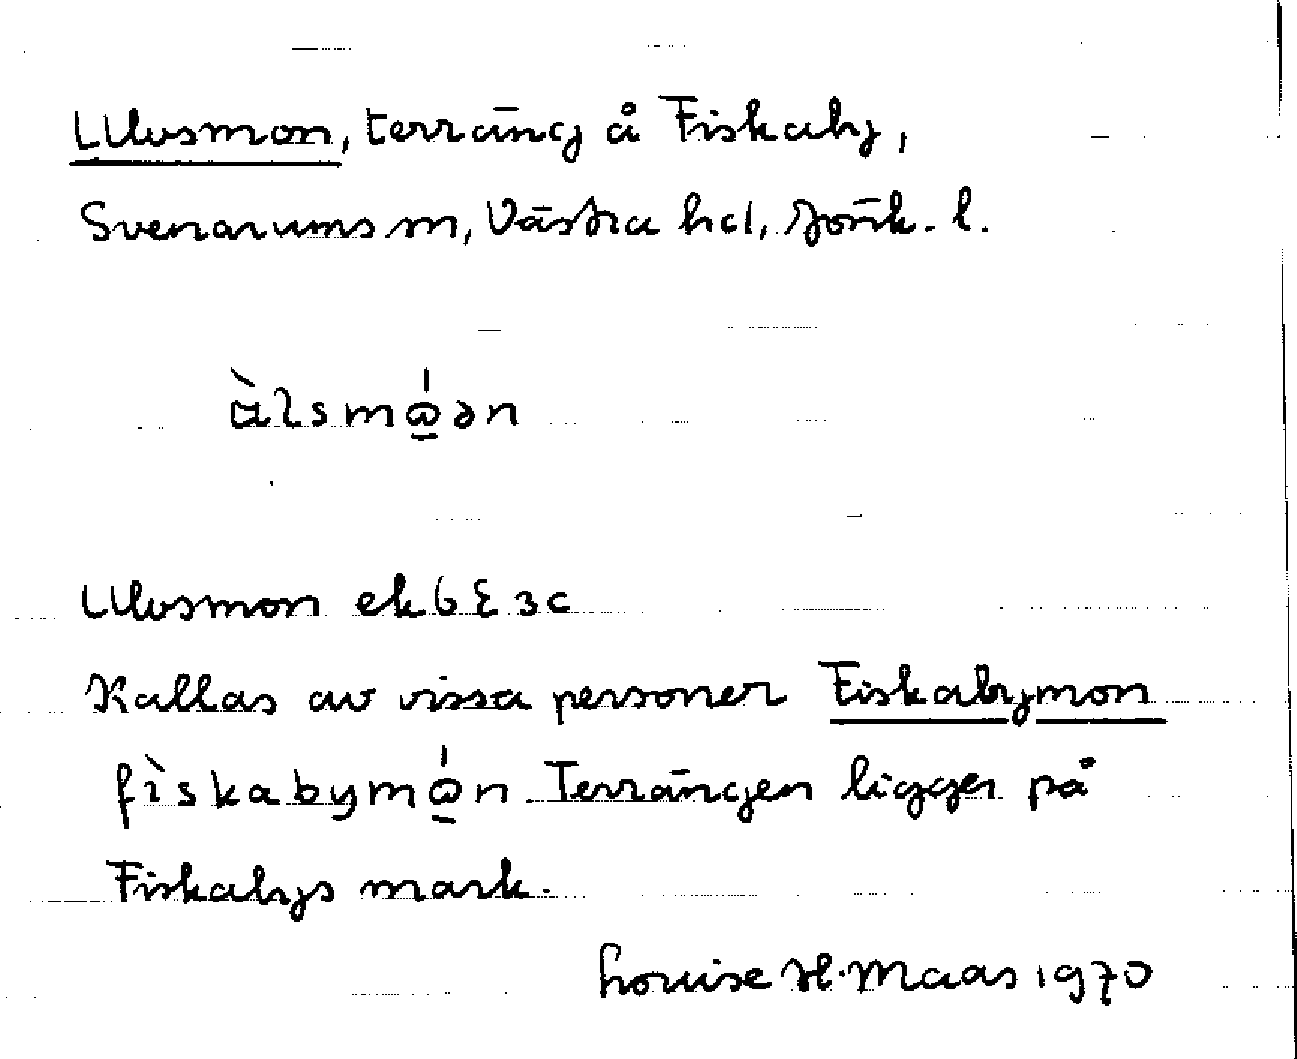 Ulvsmon, terräng å Fiskaby,
Svenarums sn, Västra hd, Jönk. l.
àlsmώ̲ən
Ulvsmon ekbl 3c
Kallas av vissa personer Fiskabymon
fìskabymώ̲n. Terrängen ligger på
Fiskabys mark.
Louise H. Maas 1970